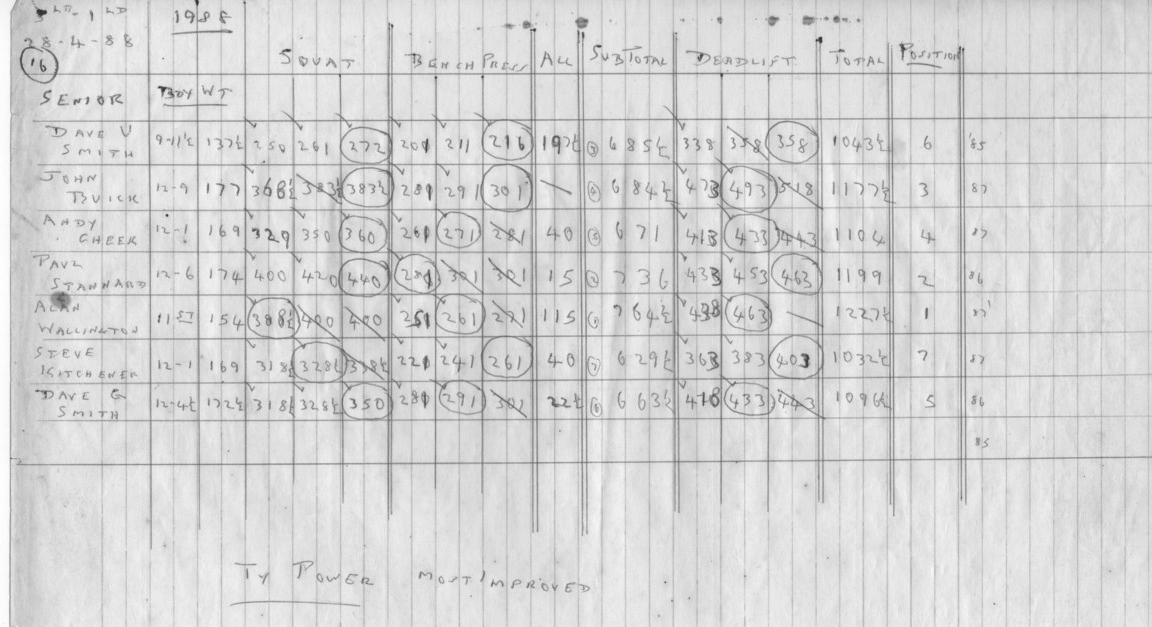 1988
28-4-88
16
SQUAT BENCH PRESS ALL SUBTOTAL DEADLIFT TOTAL POSITION
SENIOR BODY WT
DAVE V SMITH 9-11½ 137½ 250 261 272 201 211 216 197½ 685½ 338 358 358 1043½ 6 '85
JOHN BUICK 12-9 177 368½ 383½ 383½ 281 291 301 — 684½ 473 493 518 1177½ 3 87
ANDY CHEEK 12-1 169 329 350 360 261 271 281 40 671 413 433 443 1104 4 87
PAUL STANNARD 12-6 174 400 420 440 281 301 301 15 736 433 453 463 1199 2 86
ALAN WALLINGTON 11 154 388½ 400 400 251 261 271 115 764½ 438 463 — 1227½ 1 87
STEVE KITCHENER 12-1 169 318½ 328½ 338½ 221 241 261 40 629½ 363 383 403 1032½ 7 87
DAVE G SMITH 12-4½ 172½ 318½ 328½ 350 281 291 301 22½ 663½ 418 433 443 1096½ 5 86
85
TY POWER MOST IMPROVED